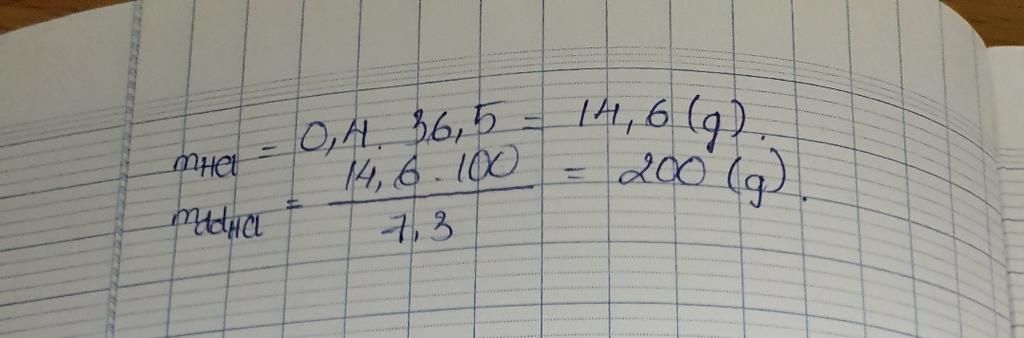 mHCl = 0,4. 36,5 = 14,6 (g).
mddHCl = 14,6 . 100 / 7,3 = 200 (g).